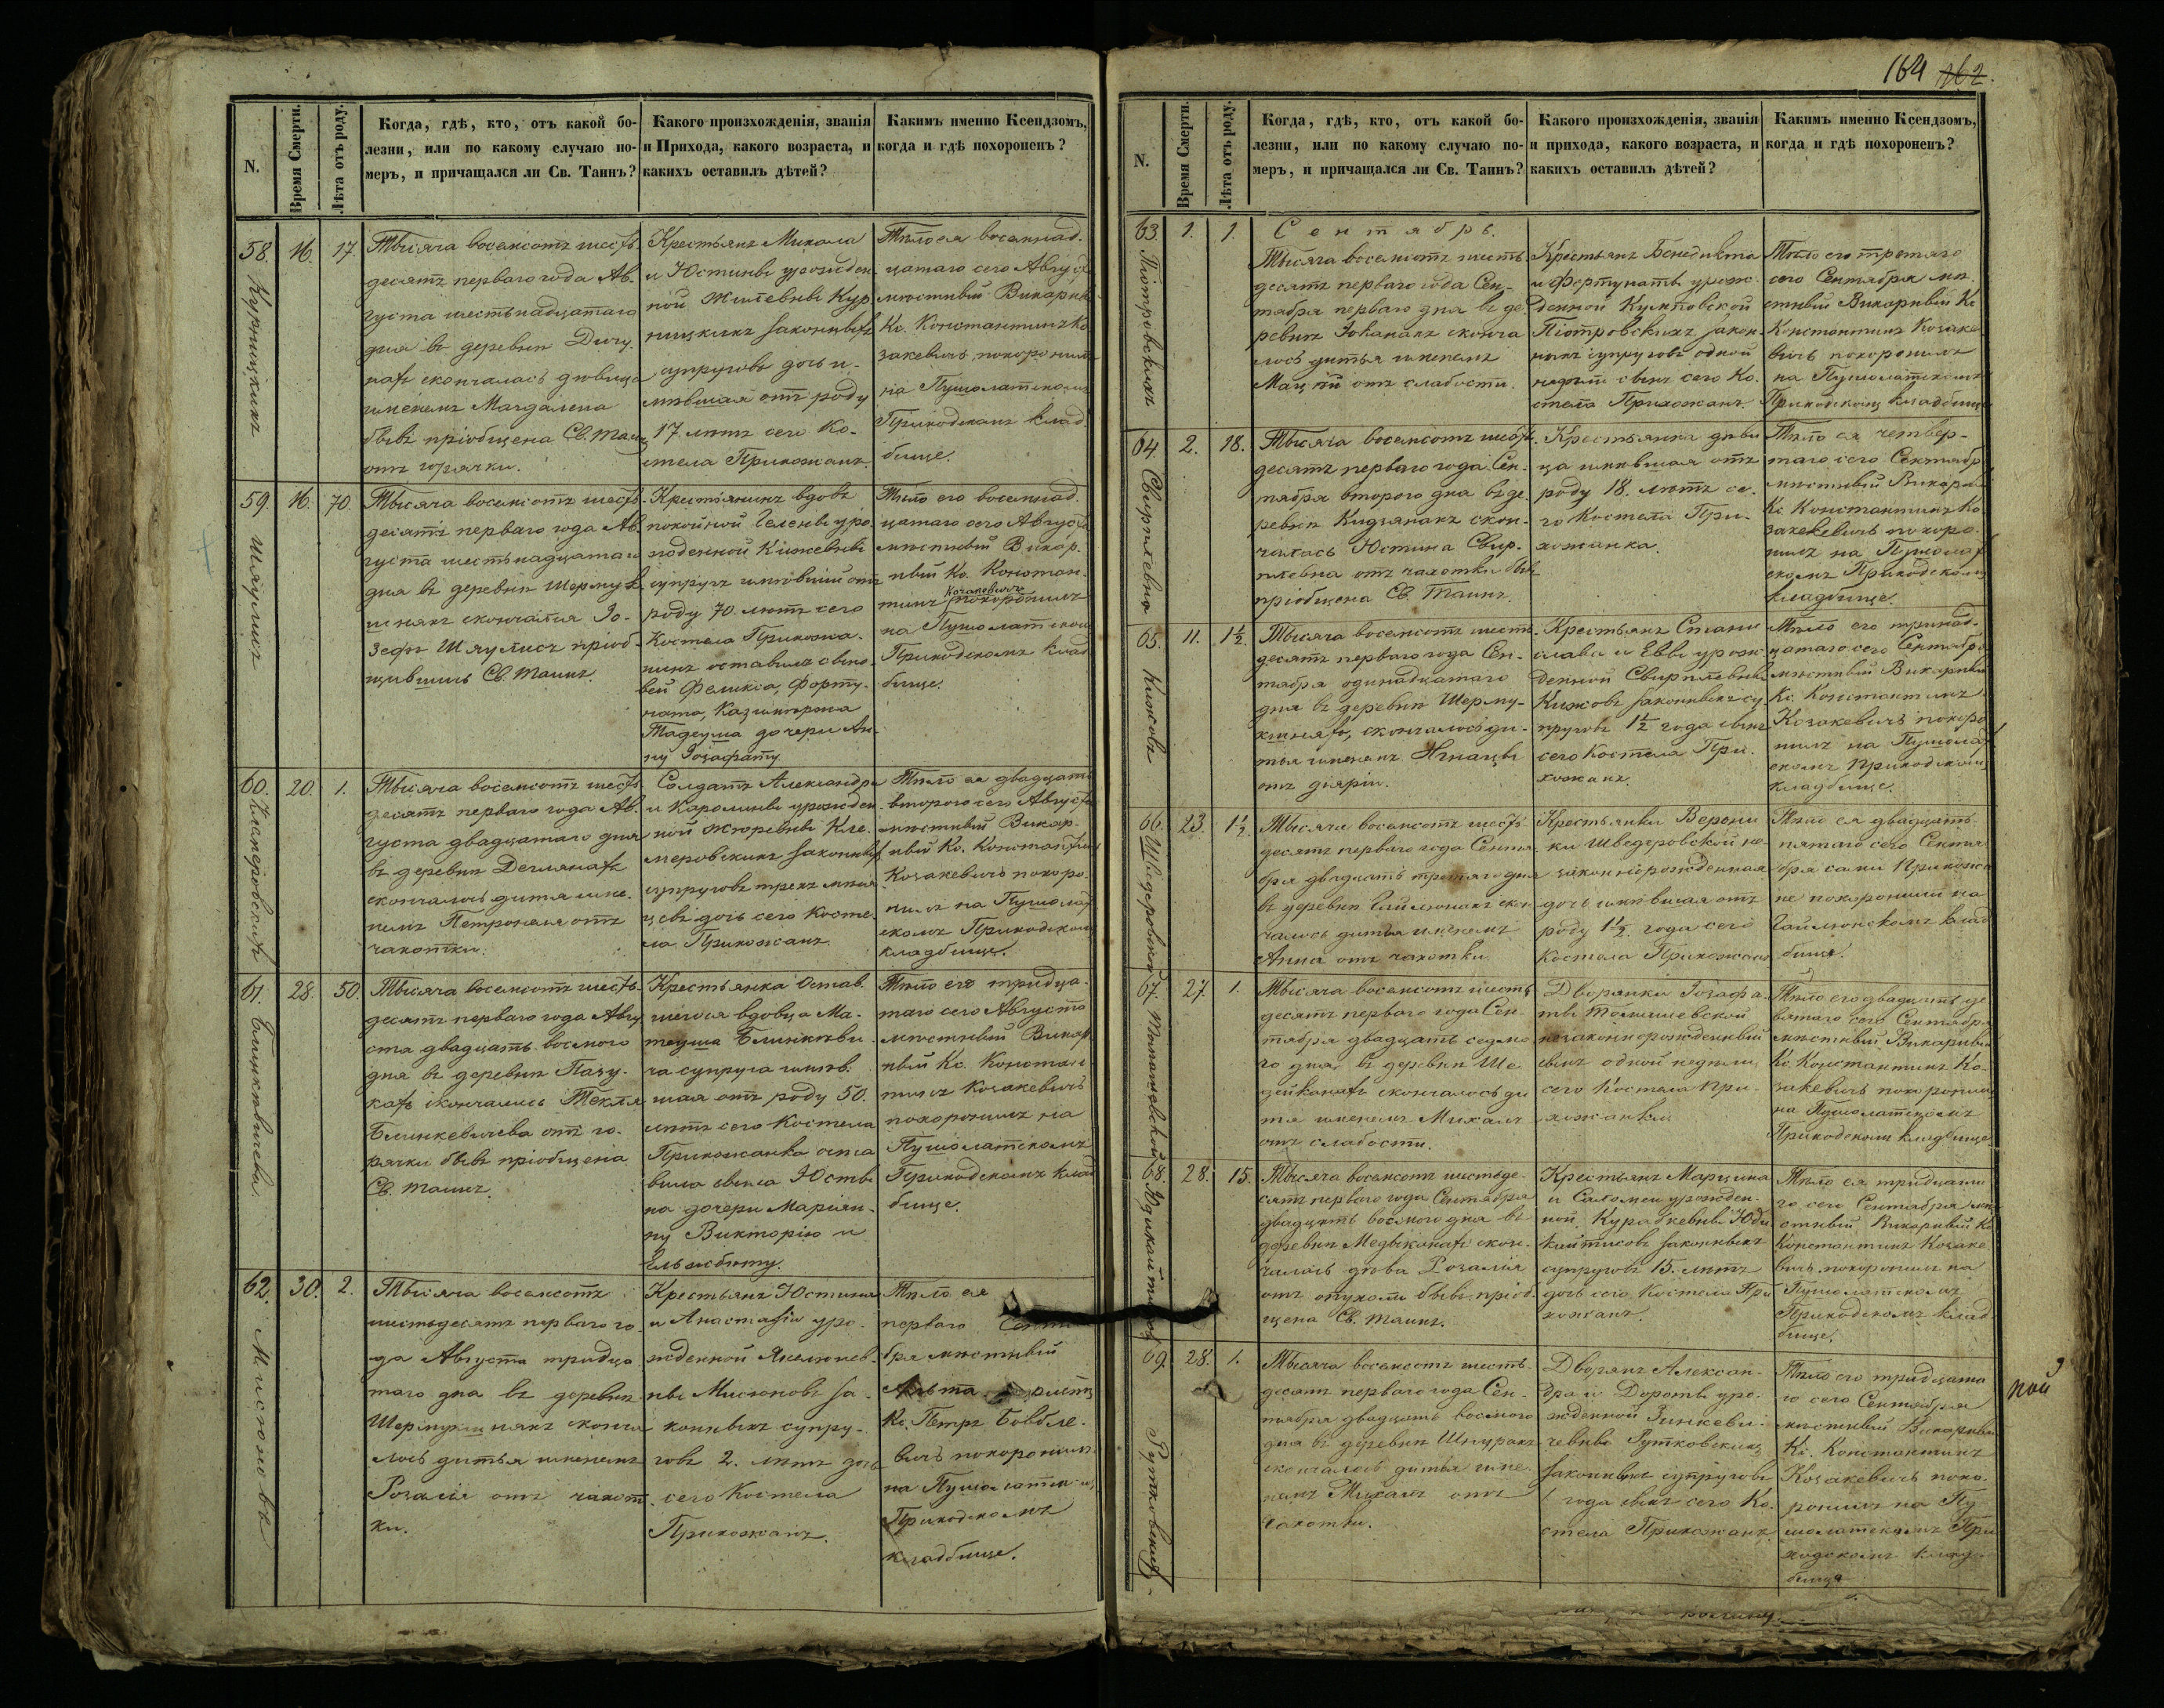 164 162.
N.
Время Смерти.
Лѣта отъ роду.
Когда, гдѣ, кто, отъ какой бо-
лезни, или по какому случаю по-
меръ, и причащался ли Св. Таинъ?
Какого произхожденія, званія
и Прихода, какого возраста, и
какихъ оставилъ дѣтей?
Какимъ именно Ксендзомъ,
когда и гдѣ похороненъ?
58. 16. 17.
Курницкихъ
Тысяча восемсотъ шесть
десятъ перваго года Ав-
густа шестьнадцатаго
дня въ деревни
скончалась дѣвица
именемъ Магдалена
бывъ пріобщена Св. Таинъ
отъ горячки.
Крестьянъ Михала
и Юстины урожден-
ной Жилевны Кур
ницкихъ законныхъ
супруговъ дочь и-
мѣвшая отъ роду
17 лѣтъ сего Ко-
стела Прихожанъ.
Тѣло ея восемнад-
цатаго сего Августа
мѣстный Викарный
Кс. Константинъ Ко
закевичъ похоронилъ
на Пушолатскомъ
Приходскомъ клад
бище.
59. 16. 70.
Шяулисъ
Тысяча восемсотъ шесть
десятъ перваго года Ав
густа шестьнадцатаго
дня въ деревни Шермук
шняхъ скончался Іо-
зефъ Шяулисъ пріоб-
щившись Св. Таинъ.
Крестьянинъ вдовъ
покойной Елены уро
жденной Кижевны
супругъ имѣвшій отъ
роду 70 лѣтъ сего
Костела Прихожа-
нинъ оставилъ сыно-
вей Феликса, Форту-
ната, Казимѣра
Тадеуша дочери Ан-
ну Іозафату.
Тѣло его восемнад-
цатаго сего Августа
мѣстный Викар-
ный Кс. Констан-
Козакевичъ
тинъ похоронилъ
на Пушолатскомъ
Приходскомъ клад
бище.
60. 20. 1.
Клемеровскихъ
Тысяча восемсотъ шесть
десятъ перваго года Ав-
густа двадцатаго дня
въ деревни Деглянахъ
скончалось дитя име-
немъ Петронеля отъ
чахотки.
Солдатъ Александра
и Каролины урожден
ной Жюревны Кле-
меровскихъ законныхъ
супруговъ трехъ мѣся
цевъ дочь сего Косте-
ла Прихожанъ.
Тѣло ея двадцать
второго сего Августа
мѣстный Викар-
ный Кс. Константинъ
Козакевичъ похоро-
нилъ на Пушолат
скомъ Приходскомъ
кладбище.
61. 28. 50.
Блинкѣвичева
Тысяча восемсотъ шесть
десятъ перваго года Авгу
ста двадцать восмого
дня въ деревни Пазу-
кахъ скончалась Текля
Блинкевичева отъ го-
рячки бывъ пріобщена
Св. Таинъ.
Крестьянка Остав-
шегося вдовца Ма-
теуша Блинкѣви
ча супруга имѣв-
шая отъ роду 50.
лѣтъ сего Костела
Прихожанка оста
вила сына Юсты
на дочери Маріян-
ну Викторію и
Ельжбѣту.
Тѣло его тридца-
таго сего Августа
мѣстный Викар
ный Кс. Констан
тинъ Козакевичъ
похоронилъ на
Пушолатскомъ
Приходскомъ клад
бище.
62. 30. 2.
Мисюновъ
Тысяча восемсотъ
шестьдесятъ перваго го-
да Августа тридца
таго дня въ деревни
Шермукшняхъ сконча
лось дитья именемъ
Розалія отъ чахот
ки.
Крестьянъ Юстина
и Анастазіи уро-
жденной Якелюнев-
ны Мисюновъ за-
конныхъ супру-
говъ 2. лѣтъ дочь
сего Костела
Прихожанъ.
Тѣло ея
перваго Сентя
бря мѣстный
Кс. Петръ
похоронилъ
на Пушолатскомъ
Приходскомъ
кладбище.
N.
Время Смерти.
Лѣта отъ роду.
Когда, гдѣ, кто, отъ какой бо-
лезни, или по какому случаю по-
меръ, и причащался ли Св. Таинъ?
Какого произхожденія, званія
и прихода, какого возраста, и
какихъ оставилъ дѣтей?
Какимъ именно Ксендзомъ,
когда и гдѣ похороненъ?
63. 1. 1.
Піотровскихъ
Сентябрь.
Тысяча восемсотъ шесть
десятъ перваго года Сен-
тября перваго дня въ де
ревни Іоганахъ сконча
лось дитья именемъ
отъ слабости.
Крестьянъ Бенедикта
и Фортунаты урож-
денной
Піотровскихъ закон-
ныхъ супруговъ одной
недѣли сынъ сего Ко-
стела Прихожанъ.
Тѣло его третяго
сего Сентября мѣ-
стный Викарный Кс
Константинъ Козаке
вичъ похоронилъ
на Пушолатскомъ
Приходскомъ кладбище
64. 2. 18.
Свирплевна
Тысяча восемсотъ шесть
десятъ перваго года Сен-
тября второго дня въ де-
ревни Кидзянахъ скон-
чалась Юстина Свир-
плевна отъ чахотки бывъ
пріобщена Св. Таинъ.
Крестьянка дѣви
ца имѣвшая отъ
роду 18. лѣтъ се-
го Костела При-
хожанка.
Тѣло ея четвер-
таго сего Сентября
мѣстный Викарный
Кс Константинъ Ко
закевичъ похоро-
нилъ на Пушолат
скомъ Приходскомъ
кладбище.
65. 11. 1½
Кижовъ
Тысяча восемсотъ шесть
десятъ перваго года Сен-
тября одинадцатаго
дня въ деревни Шерму-
кшняхъ, скончалось ди-
тья именемъ Игнацы
отъ діяріи.
Крестьянъ Стани
слава и Евы урож
денной Свирплевны
Кижовъ законныхъ су
пруговъ 1½ года сынъ
сего Костела При-
хожанъ.
Тѣло его тринад-
цатаго сего Сентября
мѣстный Викарный
Кс. Константинъ
Козакевичъ похоро
нилъ на Пушолат
скомъ Приходскомъ
кладбище.
66. 23. 1½
Шведеровской
Тысяча восемсотъ шесть
десятъ перваго года Сентя-
бря двадцать третяго дня
въ деревни Гайлюнахъ скон
чалось дитья именемъ
Анна отъ чахотки.
Крестьянки Верони
ки Шведеровской не-
законнорожденная
дочь имѣвшая отъ
роду 1½ года сего
Костела Прихожанъ
Тѣло ея двадцать
пятаго сего Сентя
бря сами Прихожа
не похоронили на
Гайлюнскомъ клад
бище.
67. 27. 1.
Тысяча восемсотъ шесть
десятъ перваго года Сен-
тября двадцать седмо
го дня въ деревни Ше
дейконахъ скончалось ди
тя именемъ Михалъ
отъ слабости.
Дворянки Іозафа
ты
незаконнорожденный
сынъ одной недѣли
сего Костела При
хожанки.
Тѣло его двадцать де
вятаго сего Сентября
мѣстный Викарный
Кс Константинъ Ко-
закевичъ похоронилъ
на Пушолатскомъ
Приходскомъ кладбище
68. 28. 15.
Тысяча восемсотъ шестьде-
сятъ перваго года Сентября
двадцать восмого дня въ
деревни Медыконахъ скон-
чалась дѣва Розалія
отъ опухоли бывъ пріоб-
щена Св. Таинъ.
Крестьянъ Марцина
и Саломеи урожден-
ной Курапкевны Юди
кайтисовъ законныхъ
супруговъ 15. лѣтъ
дочь сего Костела При
хожанъ.
Тѣло ея тридцата
го сего Сентября мѣ
стный Викарный Кс
Константинъ Козаке
вичъ похоронилъ на
Пушолатскомъ
Приходскомъ клад
бище.
69. 28. 1.
Рутковскихъ
Тысяча восемсотъ шесть-
десятъ перваго года Сен-
тября двадцать восмого
дня въ деревни Шпуракъ
скончалось дитья име-
немъ Михалъ отъ
чахотки.
Дворянъ Алексан-
дра и Дороты уро-
жденной Зинкеви-
чевны Рутковскихъ
законныхъ супруговъ
1 года сынъ сего Ко-
стела Прихожанъ
Тѣло его тридцата
го сего Сентября
мѣстный Викарный
Кс. Константинъ
Козакевичъ похо-
ронилъ на Пу
шолатскомъ При
ходскомъ клад-
бище